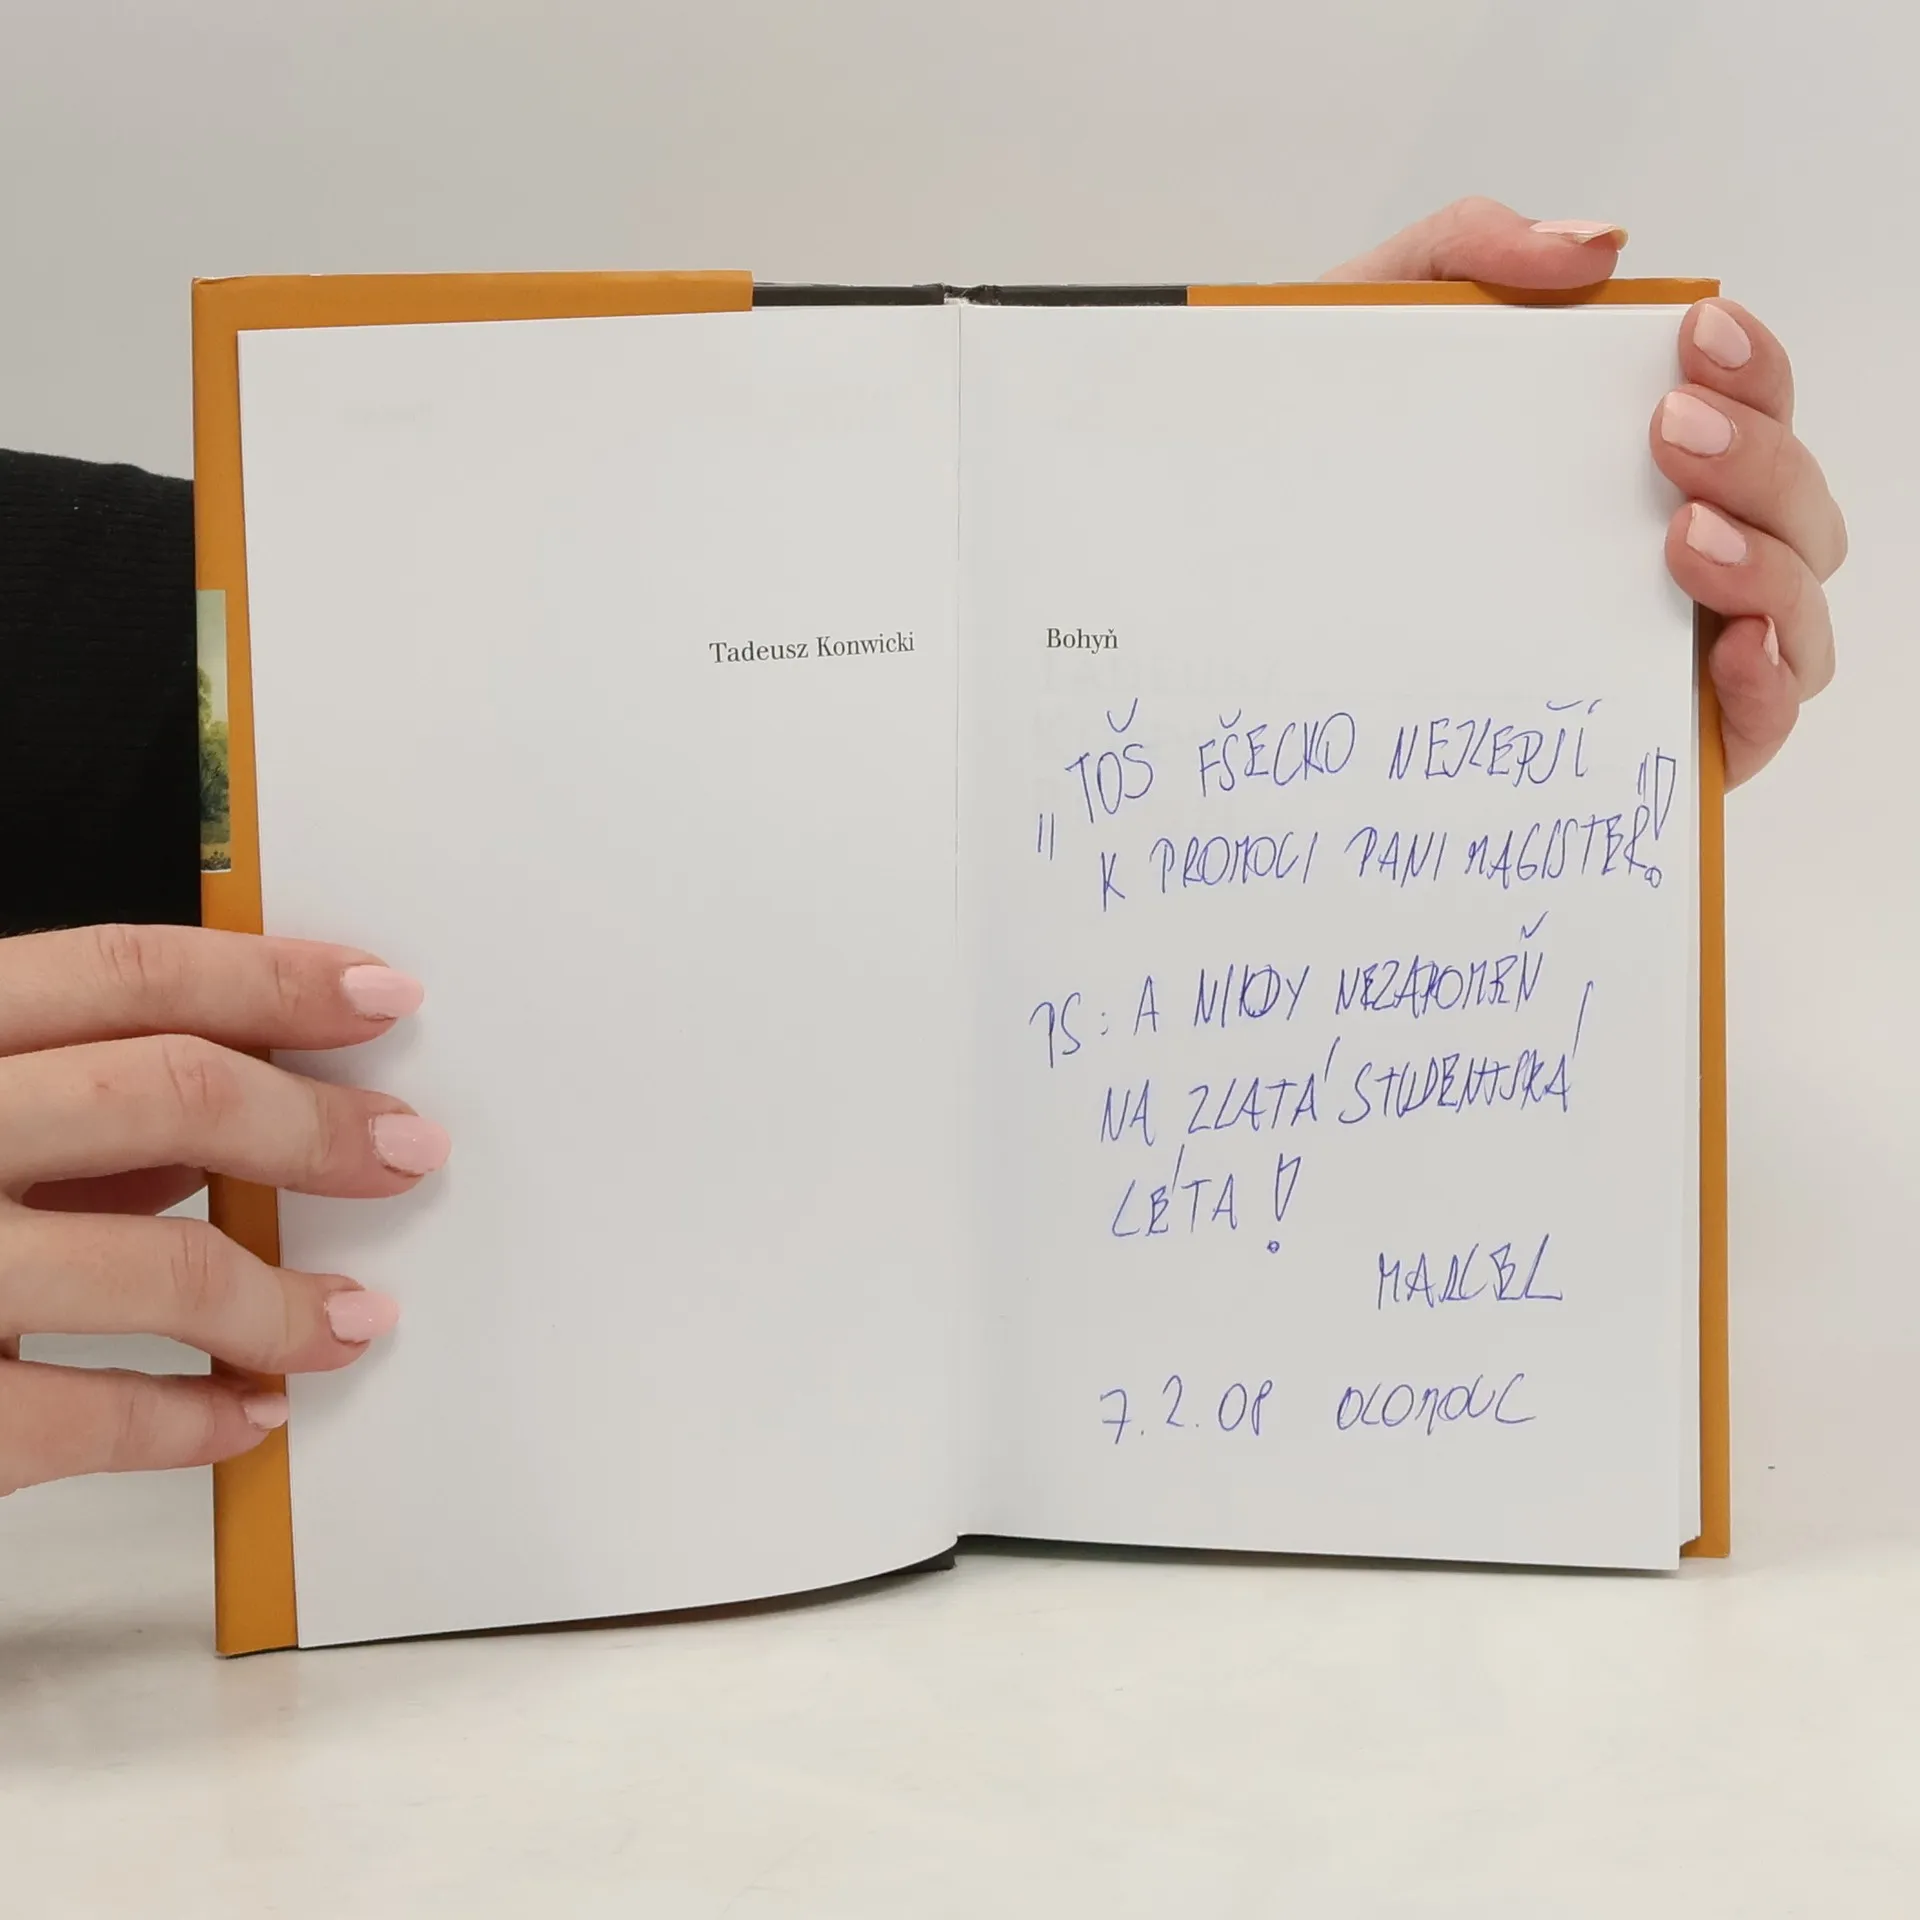 Tadeusz Konwicki
Bohyň
„TOŠ FŠECKO NEJLEPŠÍ
K PROMOCI PANI MAGISTER"!
PS: A NIKDY NEZAPOMEŇ
NA ZLATÁ STUDENTSKÁ
LÉTA!
MARCEL
7.2.08 OLOMOUC